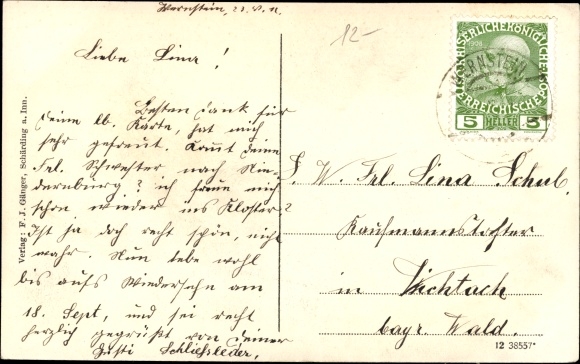 Wernstein, 21.V.11.
12-
Liebe Lina!
Besten Dank für
Deine lb. Karte, hat mich
sehr gefreut. Kommt deine
Frl. Schwester nach Nie-
dernburg? ich freue mich
schon wieder ins Kloster?
Ist ja doch recht schön, nicht
wahr. Nun lebe wohl
bis aufs Wiedersehn am
18. Sept, und sei recht
herzlich gegrüßt von Deiner
Gusti Schließleder,
Verlag: F. J. Gänger, Schärding a. Inn.
KAISERLICHE KÖNIGLICHE
1908
ÖSTERREICHISCHE
5 HELLER 5
WERNSTEIN
S. W. Frl. Lina Schub.
Kaufmannstochter
in Viechtach
bayr. Wald.
12 38557*